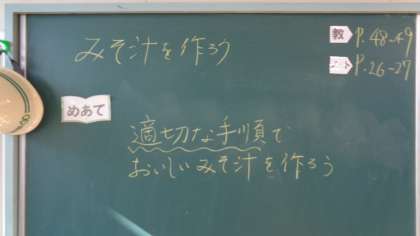 みそ汁を作ろう
教 P.48-49
ノート P.26-27
めあて
適切な手順で
おいしいみそ汁を作ろう